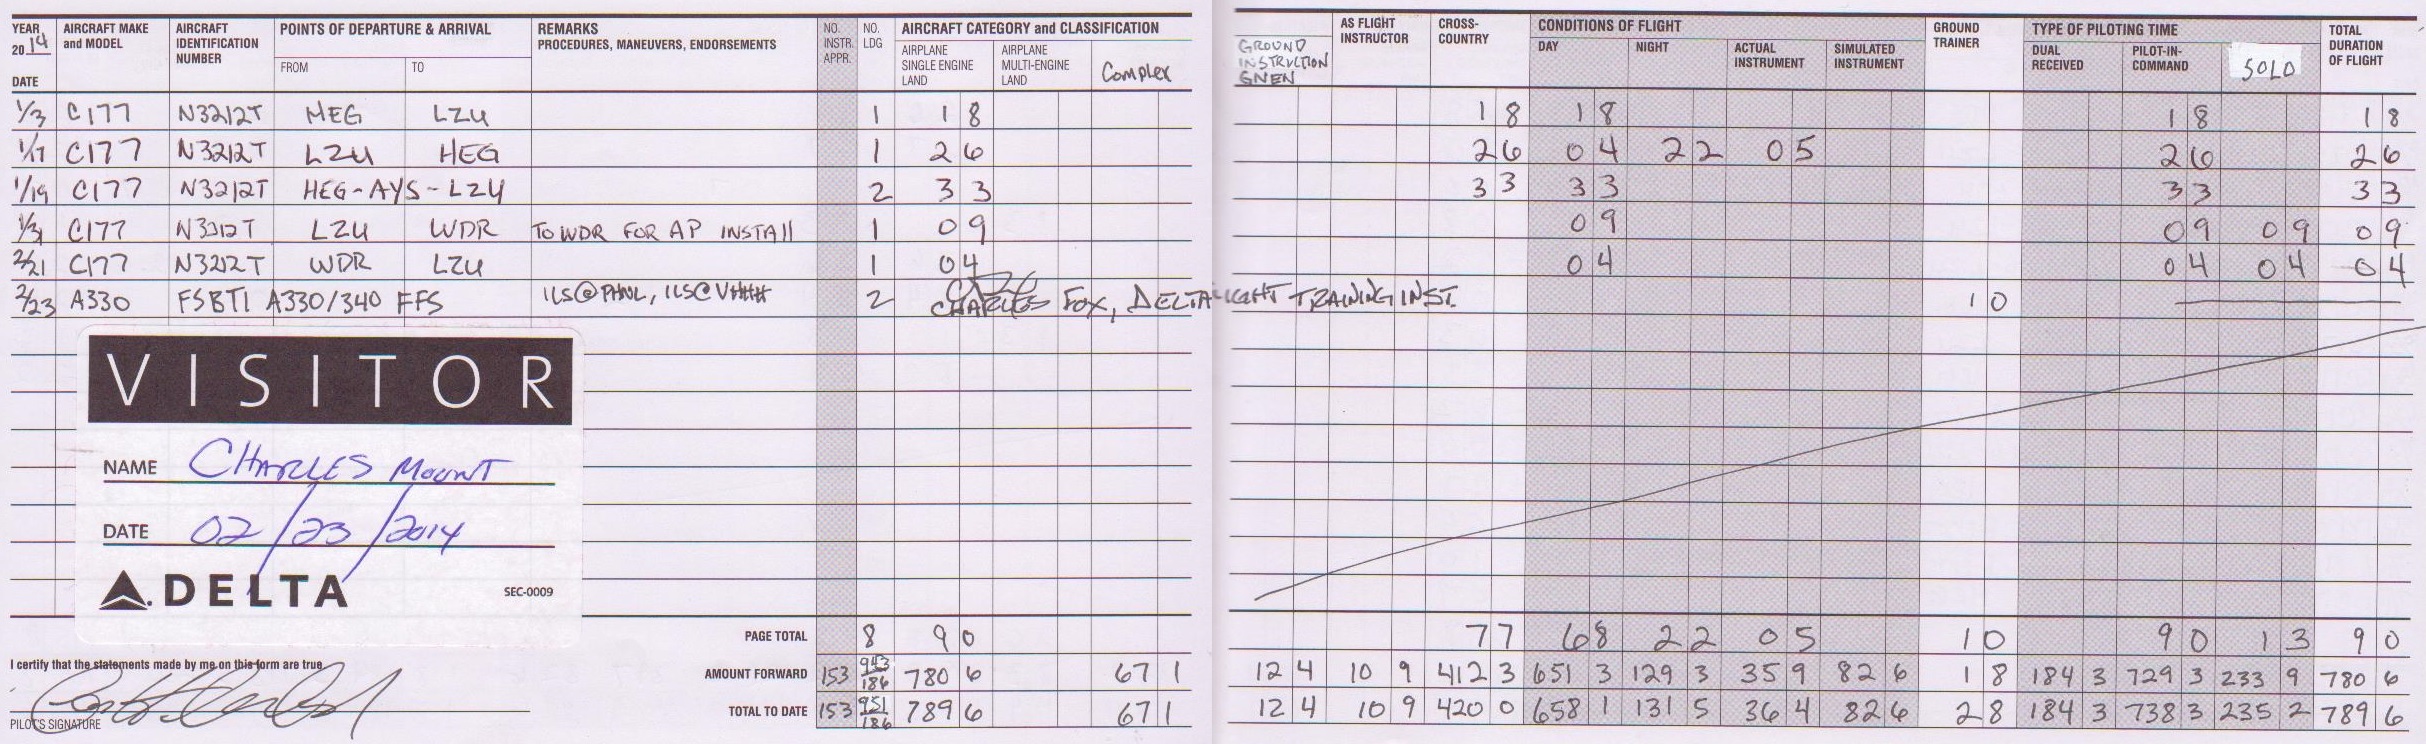 YEAR 2014 DATE AIRCRAFT MAKE and MODEL AIRCRAFT IDENTIFICATION NUMBER POINTS OF DEPARTURE & ARRIVAL FROM TO REMARKS PROCEDURES, MANEUVERS, ENDORSEMENTS NO. INSTR. APPR. NO. LDG AIRCRAFT CATEGORY and CLASSIFICATION AIRPLANE SINGLE ENGINE LAND AIRPLANE MULTI-ENGINE LAND Complex GROUND INSTRUCTION GNEN AS FLIGHT INSTRUCTOR CROSS-COUNTRY CONDITIONS OF FLIGHT DAY NIGHT ACTUAL INSTRUMENT SIMULATED INSTRUMENT GROUND TRAINER TYPE OF PILOTING TIME DUAL RECEIVED PILOT-IN-COMMAND SOLO TOTAL DURATION OF FLIGHT
1/3 C177 N3212T HEG LZU 1 1 8 1 8 1 8 1 8 1 8
1/17 C177 N3212T LZU HEG 1 2 6 2 6 0 4 2 2 0 5 2 6 2 6
1/19 C177 N3212T HEG-AYS-LZU 2 3 3 3 3 3 3 3 3 3 3
1/31 C177 N3212T LZU WDR TO WDR FOR AP INSTAll 1 0 9 0 9 0 9 0 9 0 9
2/21 C177 N3212T WDR LZU 1 0 4 0 4 0 4 0 4 0 4
2/23 A330 FSBTI A330/340 FFS ILS@PHNL, ILS@VHHH 2 CHARLES FOX, DELTA FLIGHT TRAINING INST. 1 0
VISITOR
NAME CHARLES MOUNT
DATE 02/23/2014
DELTA SEC-0009
PAGE TOTAL 8 9 0 7 7 6 8 2 2 0 5 1 0 9 0 1 3 9 0
I certify that the statements made by me on this form are true.
AMOUNT FORWARD 153 943 186 780 6 67 1 12 4 10 9 412 3 651 3 129 3 35 9 82 6 1 8 184 3 729 3 233 9 780 6
TOTAL TO DATE 153 951 186 789 6 67 1 12 4 10 9 420 0 658 1 131 5 36 4 82 6 2 8 184 3 738 3 235 2 789 6
PILOT'S SIGNATURE